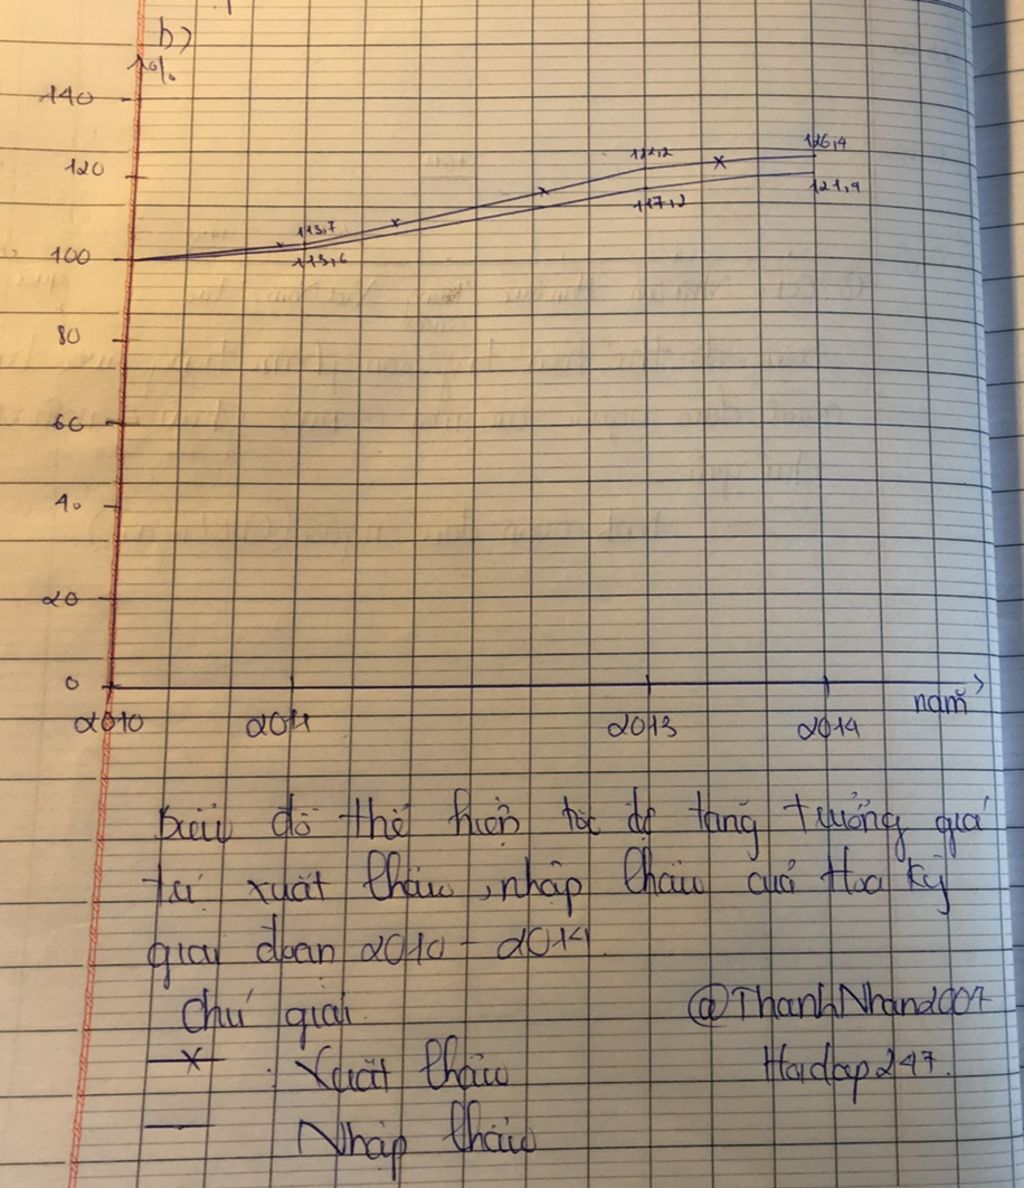 b)
%
140
126,4
122,2
120
121,9
117,2
113,7
100
113,6
80
60
40
20
0
năm
2010 2011 2013 2014
Biểu đồ thể hiện tốc độ tăng trưởng giá
trị xuất khẩu, nhập khẩu của Hoa Kỳ
giai đoạn 2010 - 2014
Chú giải
@ThanhNhan2007
x : Xuất khẩu
Hoidap247.
Nhập khẩu